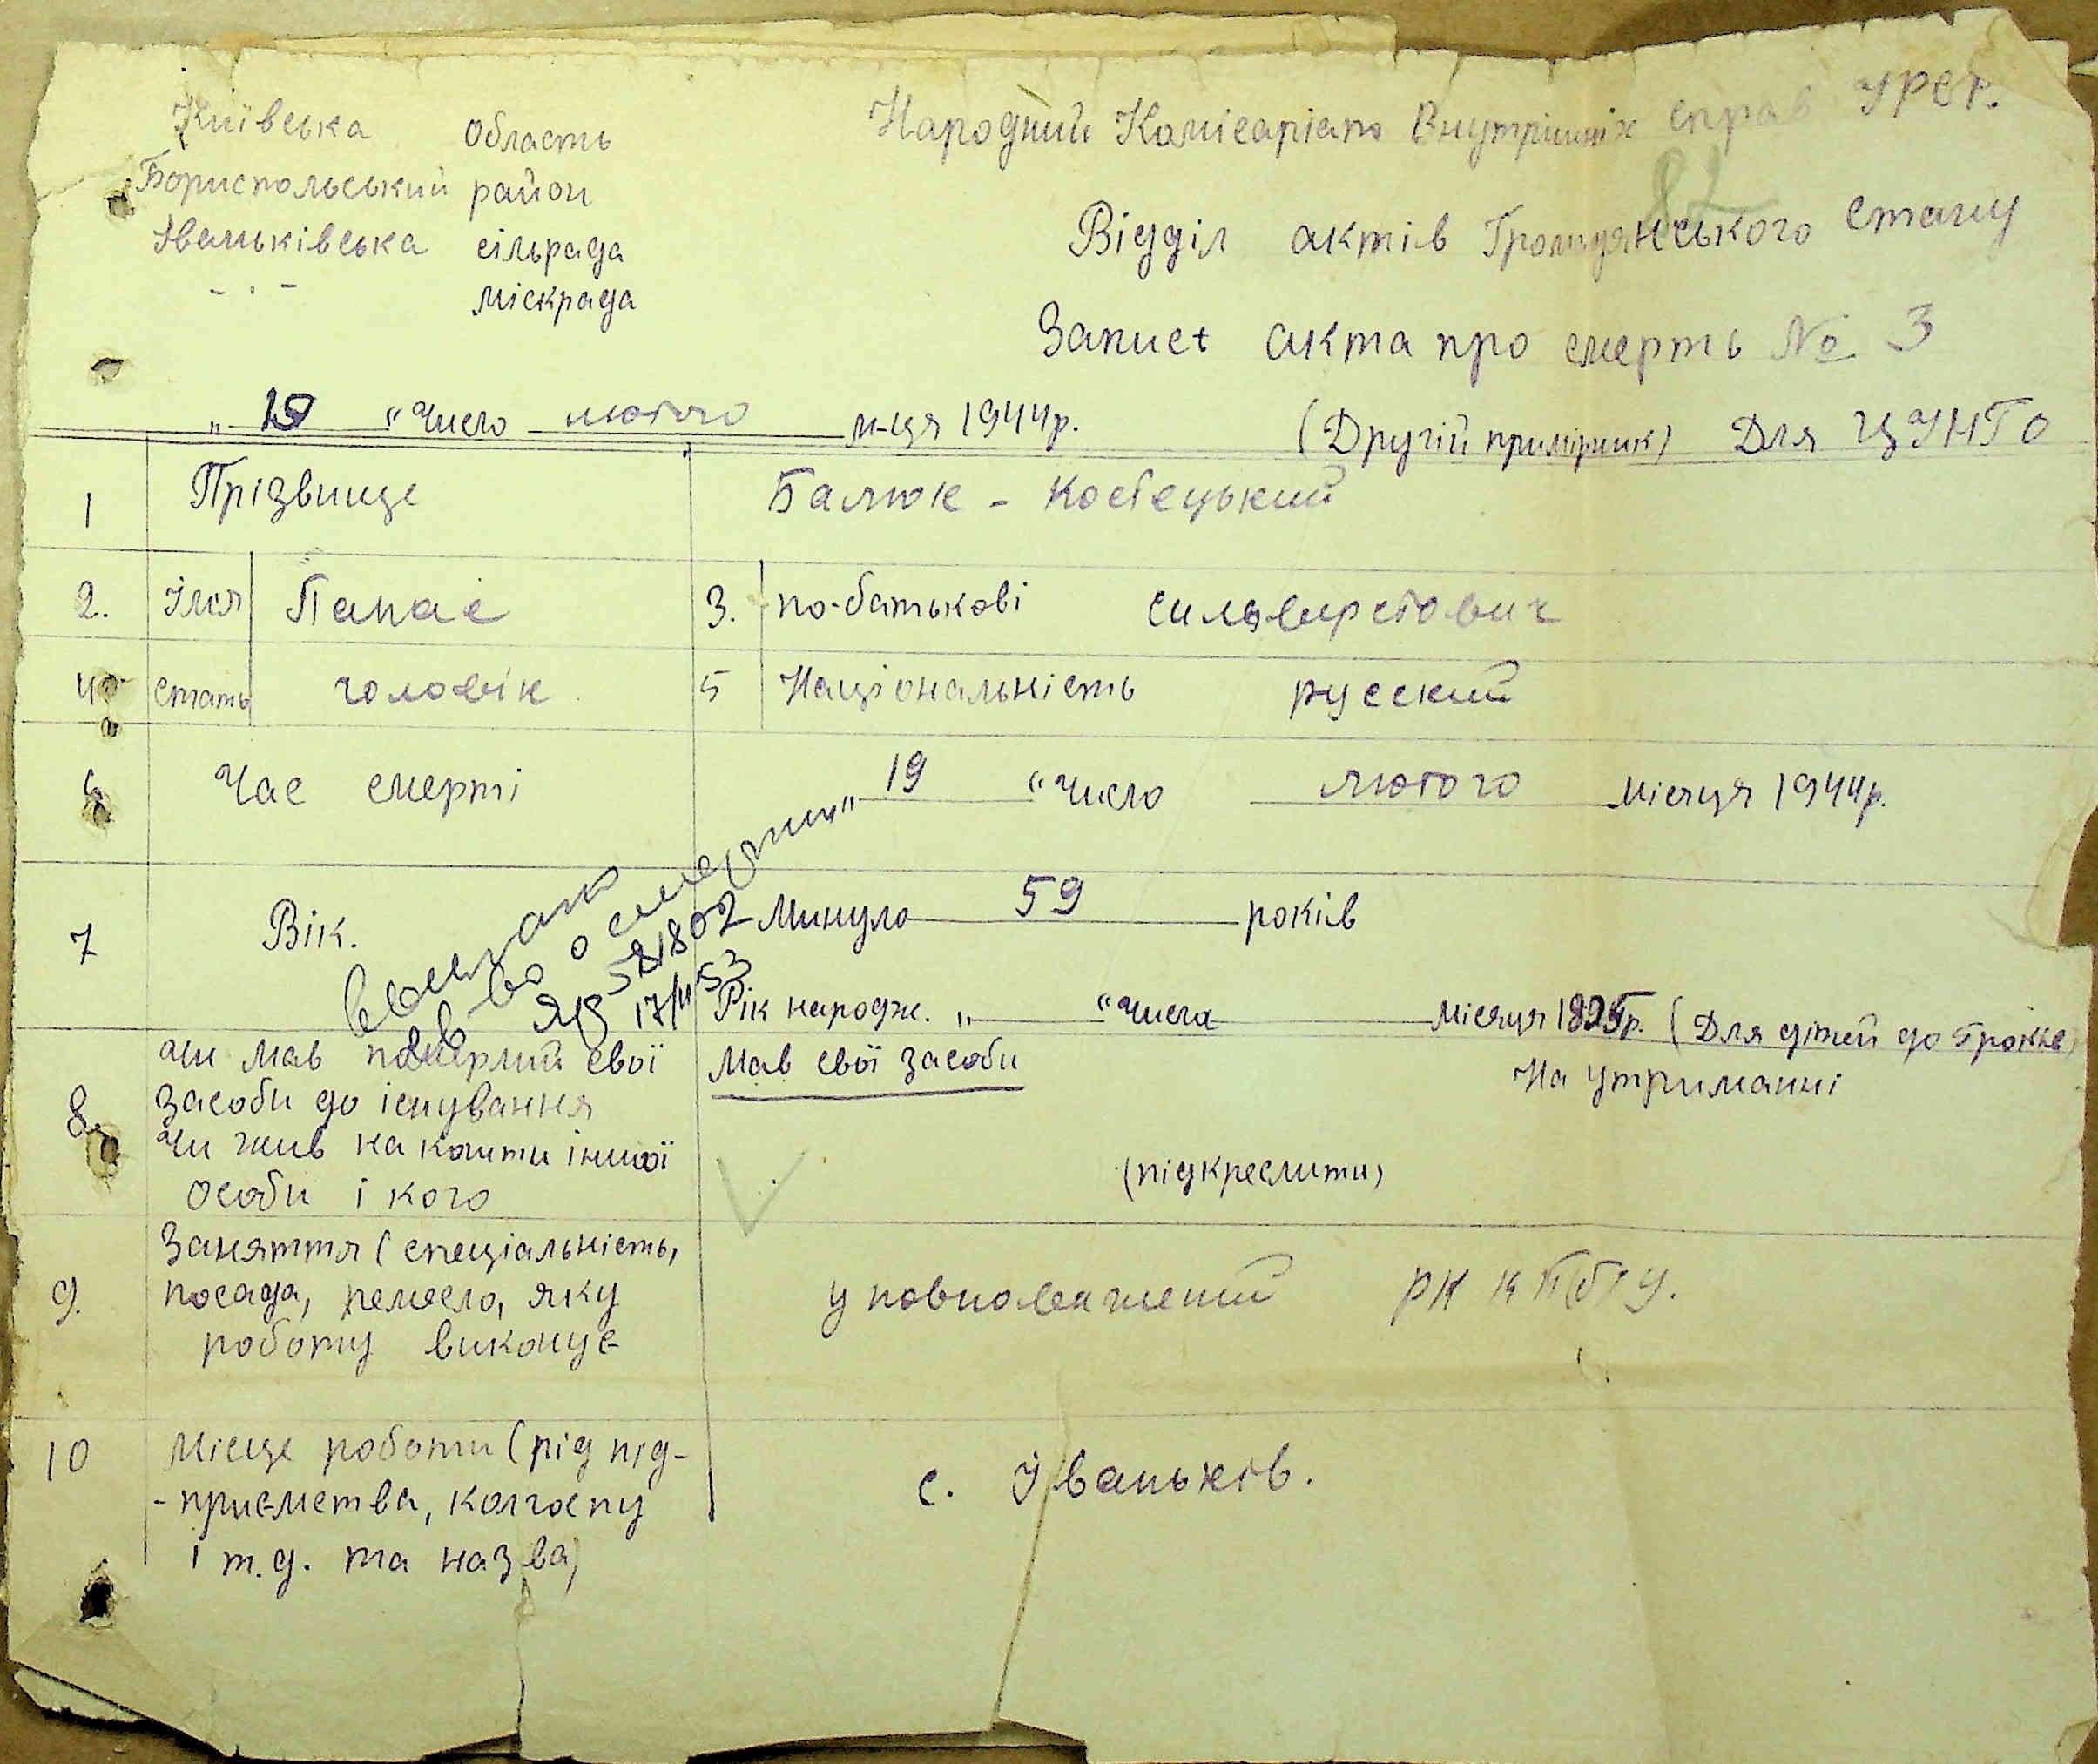 Київська область
Бориспольський район
Іваньківська сільрада
- . - міскрада
Народний Комісаріат Внутрішніх справ УРСР.
82
Відділ актів Громадянського Стану
Запис акта про смерть № 3
„ 19 “ Число лютого м-ця 1944р.
(Другий примірник) Для ЦУНГО
1 Прізвище Балюк - Костецький
2. Імя Панас 3. по-батькові Сильверстович
4 стать чоловік 5 Національність русский
6 Час смерті „ 19 “ Число лютого місяця 1944р.
7 Вік. Минуло 59 років
Рік народж. „ “ Числа місяця 18 р. (Для дітей до 5 років)
о смерти
ЯЮ 581802
17/II 53
8. Чи мав померлий свої
засоби до існування
чи жив на кошти іншої
особи і кого
Мав свої засоби На утриманні
(підкреслити)
9. Заняття (спеціальність,
посада, ремесло, яку
роботу виконує
уповноважений РК КП(б)У.
10 Місце роботи (рід під-
-приємства, колгоспу
і т.д. та назва)
с. Іваньків.